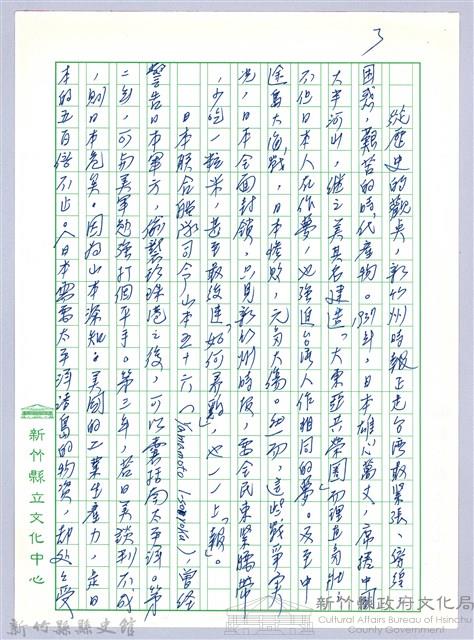 3
從歷史的觀點，新竹州時報正是台灣最緊張、最
困惑，艱苦的時代產物。1937年，日本雄心萬丈，席捲中國
大半河山，繼之美其名建造「大東亞共榮圈」而理直氣壯，
不但日本人在作夢，也強迫台灣人作相同的夢。及至中
途島大海戰，日本慘敗，元氣大傷。然而，這些戰爭實
況，日本全面封鎖，只見新竹州時報，要令民束緊腰帶
，少吃一粒米，甚至最後連「如何養雞」，也一一上「報」。
日本聯合艦隊司令山本五十六（Yamamoto Isoroku），曾經
警告日本軍方，偷襲珍珠港之後，可以囊括南太平洋。第
二年，可與美軍勉強打個平手。第三年，若日美談判不成
，則日本危矣。因為山本深知：美國的工業生產力，是日
本的五百倍不止。今日本需要太平洋諸島的物資，却處處受
新竹縣立文化中心
新竹縣縣史館
新竹縣政府文化局
Cultural Affairs Bureau of Hsinchu
County Government